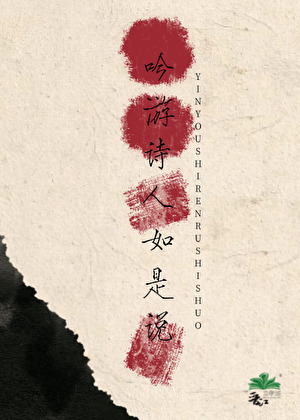 吟游诗人如是说
YINYOUSHIRENRUSHISHUO